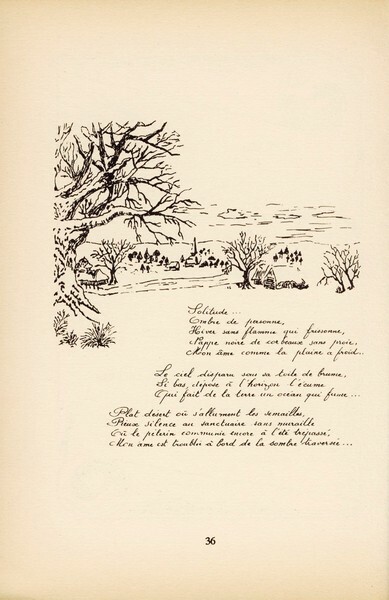 Solitude...
Ombre de personne,
Hiver sans flamme qui frissonne,
Nappe noire de corbeaux sans proie,
Mon âme comme la plaine a froid...
Le ciel disparu sous sa toile de brume,
Si bas, dépose à l'horizon l'écume
Qui fait de la terre un océan qui fume...
Plat désert où s'allument les semailles,
Pieux silence au sanctuaire sans muraille
Où le pèlerin communie encore à l'été trépassé,
Mon âme est trouble à bord de la sombre traversée...
36